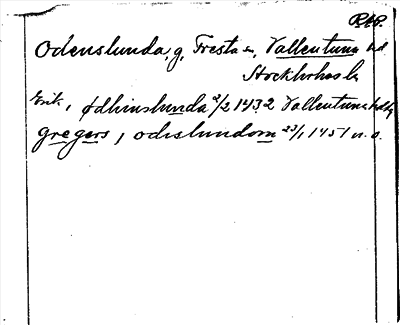 RAP.
Odenslunda, g, Fresta sn, Vallentuna hd.
Stockholms l.
Erik, i ødhinslunda 2/2 1432 Vallentuna hdb
gregers, i odislundom 23/1 1451 n. a.